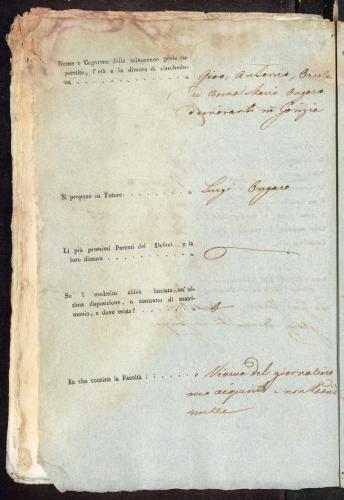 Nome e Cognome delle minorenne prole su-
perstite, l'età e la dimora di ciaschedu-
na
Gios, Antonio, 
ed Anna Maria Ongaro
dimoranti in Gorizia
Si propone in Tutore
Luigi Ongaro
Li più prossimi Parenti del Defont. e la
loro dimora
Se i medesim abbia lasciata un'ul-
tima disposizione, o contratto di matri-
monio, e dove esista?
In che consista la Facoltà
Viveva del giornaliero
suo acquisto e non lasciò
nulla